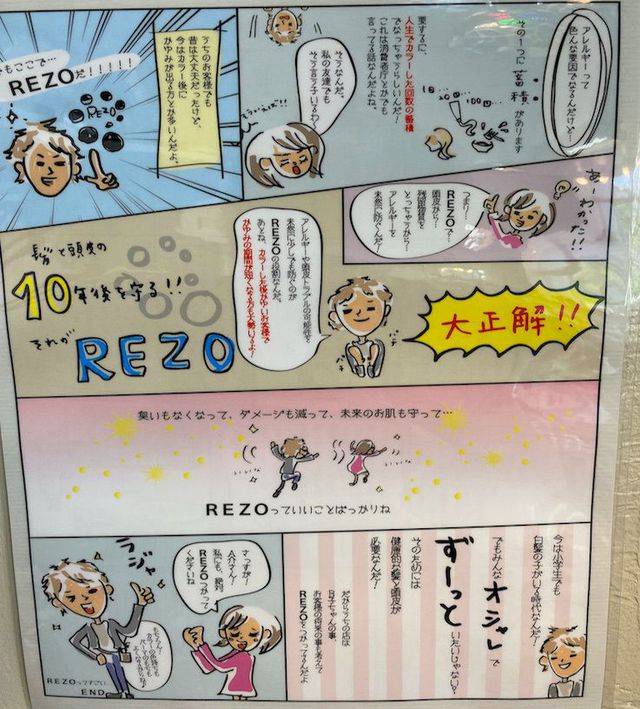 アレルギーって
色んな要因でなるんだけど…
その1つに蓄積があります
要するに、
人生でカラーした回数の蓄積
でなっちゃうらしいんだ！
これは消費者庁とかでも
言ってる話なんだよね。
そうなんだ。
私の友達でも
そう言う子いるわ〜
うちのお客様でも
昔は大丈夫だったけど、
今はカラー後に
かゆみが出る方とか多いんだよ。
そこで…
REZOだ!!!!!
REZO
あーわかった!!
つまり…
REZOで
頭皮から
残留物質を
とっちゃうから！
アレルギーを
未然に防ぐんだ！
大正解!!
アレルギーや頭皮トラブルの可能性を
未然に少しでも防ぐのが
REZOの役割なんだ。
あとね、カラーした後かゆいお客様で
かゆみの期間が短くなる方も大勢いるよ！
パチ
パチ
髪と頭皮の
10年後を守る!!
それが
REZO
臭いもなくなって、ダメージも減って、未来のお肌も守って…
REZOっていいことばっかりね
今は小学生でも
白髪の子がいる時代なんだ！
でもみんなオシャレで
ずーっと
いたいじゃない？
そのためには
健康的な髪と頭皮が
必要なんだ！
だからうちの店は
B子ちゃんの事、
お客様の将来の事も考えて
REZOをつかってるんだよ
さっすが！
Aさん！
私にも、絶対
REZOつかって
くださいね
ラジャ
REZOってすごい。
END